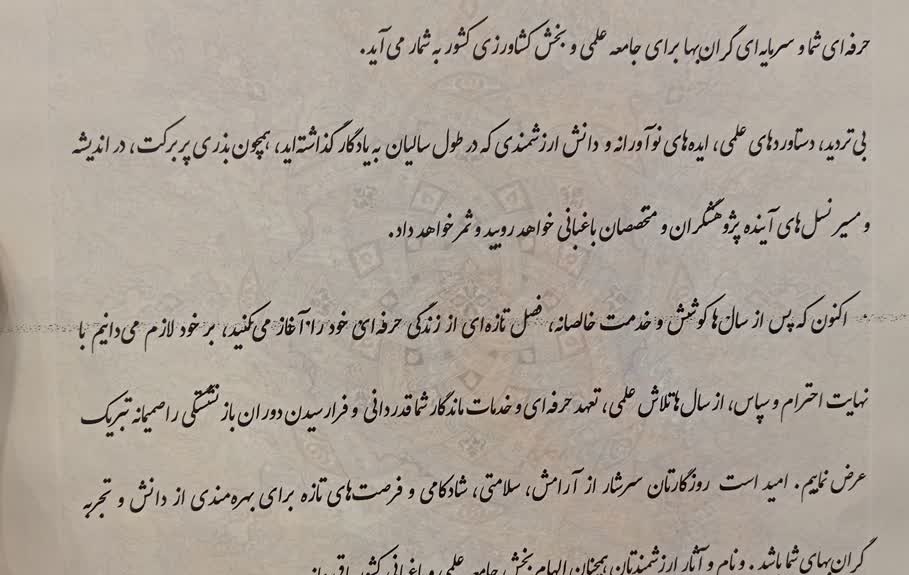 حرفه‌ای شما و سرمایه‌ای گران‌بها برای جامعه علمی و بخش کشاورزی کشور به شمار می‌آید.
بی‌تردید، دستاوردهای علمی، ایده‌های نوآورانه و دانش ارزشمندی که در طول سالیان به یادگار گذاشته‌اید، همچون بذری پربرکت، در اندیشه
و مسیر نسل‌های آینده پژوهشگران و متخصصان باغبانی خواهد رویید و ثمر خواهد داد.
اکنون که پس از سال‌ها کوشش و خدمت خالصانه، فصل تازه‌ای از زندگی حرفه‌ای خود را آغاز می‌کنید، بر خود لازم می‌دانیم با
نهایت احترام و سپاس، از سال‌ها تلاش علمی، تعهد حرفه‌ای و خدمات ماندگار شما قدردانی و فرارسیدن دوران بازنشستگی را صمیمانه تبریک
عرض نماییم. امید است روزگارتان سرشار از آرامش، سلامتی، شادکامی و فرصت‌های تازه برای بهره‌مندی از دانش و تجربه
گران‌بهای شما باشد. و نام و آثار ارزشمندتان همچنان الهام بخش جامعه علمی و باغبانی کشور باقی بماند.